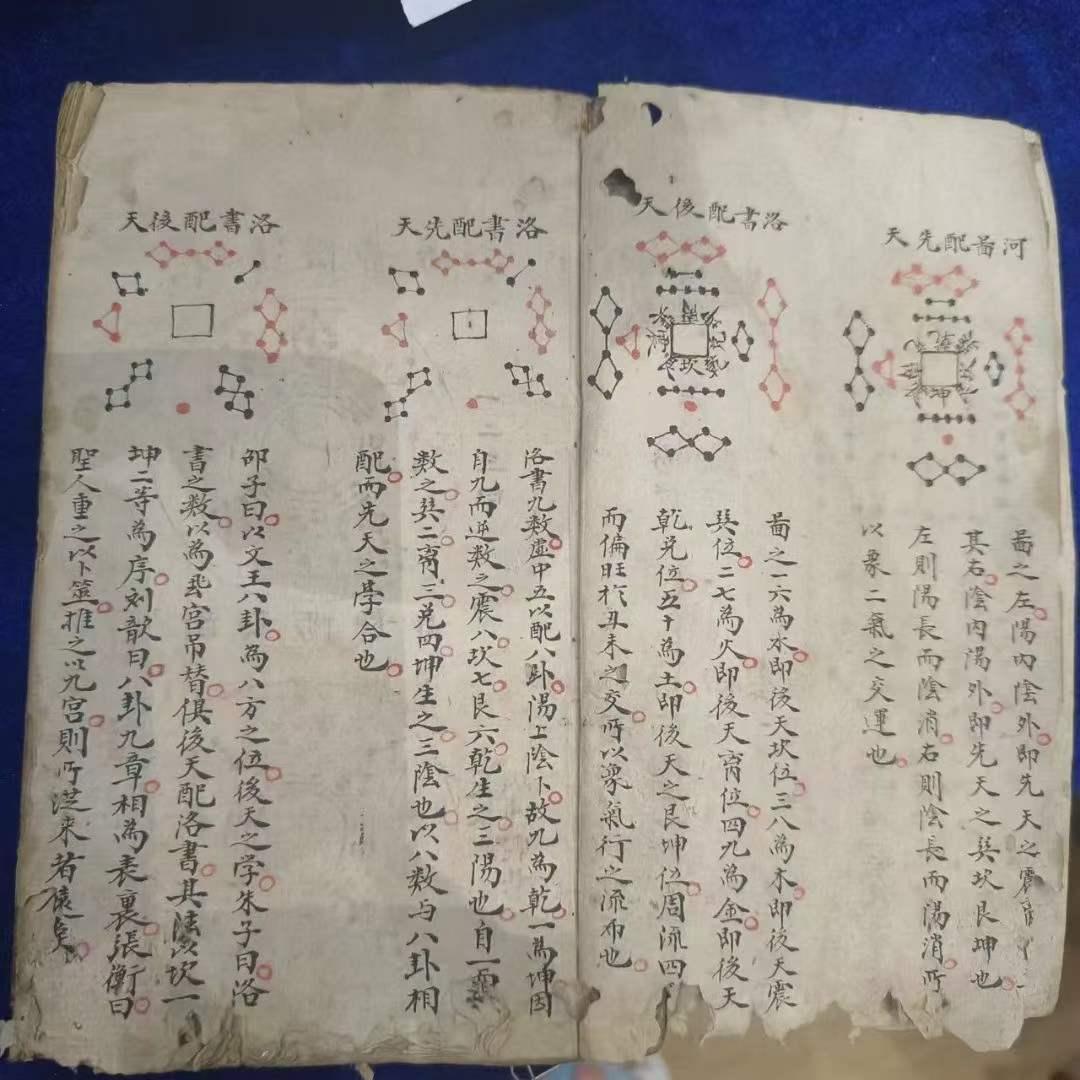 河啚配先天
啚之左陽內陰外即先天之震
其右陰內陽外即先天之巽坎艮坤也
左則陽長而陰消右則陰長而陽消所
以象二氣之交運也
洛書配後天
啚之一六為水即後天坎位三八為木即後天震
巽位二七為火即後天离位四九為金即後天
乾兌位五十為土即後天之艮坤位周流四
而偏旺於丑未之交所以象氣行之流布也
坎
洛書配先天
洛書九數虛中五以配八卦陽上陰下故九為乾一為坤因
自九而逆數之震八坎七艮六乾生之三陽也自一而
數之巽二离三兌四坤生之三陰也以八數与八卦相
配而先天之學合也
洛書配後天
邵子曰以文王八卦為八方之位後天之学朱子曰洛
書之数以為飛宮吊替俱後天配洛書其法以坎一
坤二等為序刘歆曰八卦九章相為表裏張衡曰
聖人重之以卜筮推之以九宮則所従来者遠矣